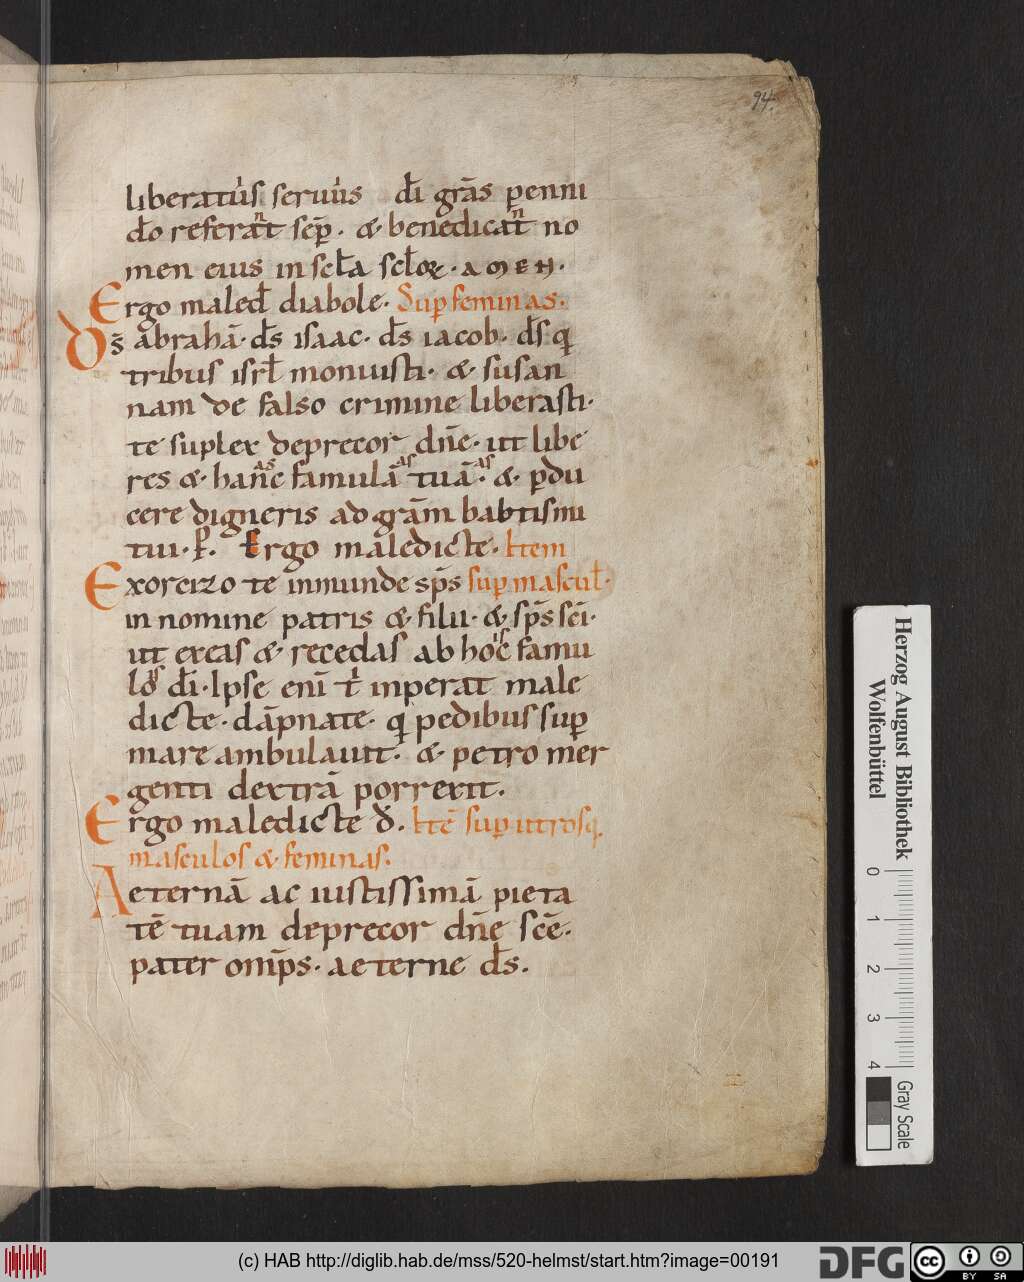 94.
liberatus seruus di grās ꝑenni
do referat sēp. & benedicat no
men eius in scl̄a scl̄oꝝ. AMEN.
Ergo maled̄ diabole. Sup feminas.
Ds̄ abrahā. ds̄ isaac. ds̄ iacob. ds̄ qi
tribus isrl̄ monuisti. & susan
nam de falso crimine liberasti.
te suplex deprecor dn̄e. ut libe
res & hanc famulā tuā. & ꝑdu
cere digneris ad grām babtismi
tui. ꝑ. Ergo maledicte. Item
Exorcizo te inmunde sp̄s sup mascul̄.
in nomine patris & filii. & sp̄s scī.
ut exeas & recedas ab hoc famu
lo dī. Ipse enī ti inperat male
dicte. dāpnate. qi pedibus sup
mare ambulauit. & petro mer
genti dextrā porrexit.
Ergo maledicte d̄. Itē sup utrosq.
masculos & feminas.
Aeternā ac iustissimā pieta
tē tuam deprecor dn̄e scē.
pater omp̄s. aeterne ds̄.
Herzog August Bibliothek
Wolfenbüttel
0 1 2 3 4
Gray Scale
(c) HAB http://diglib.hab.de/mss/520-helmst/start.htm?image=00191
DFG
cc BY SA